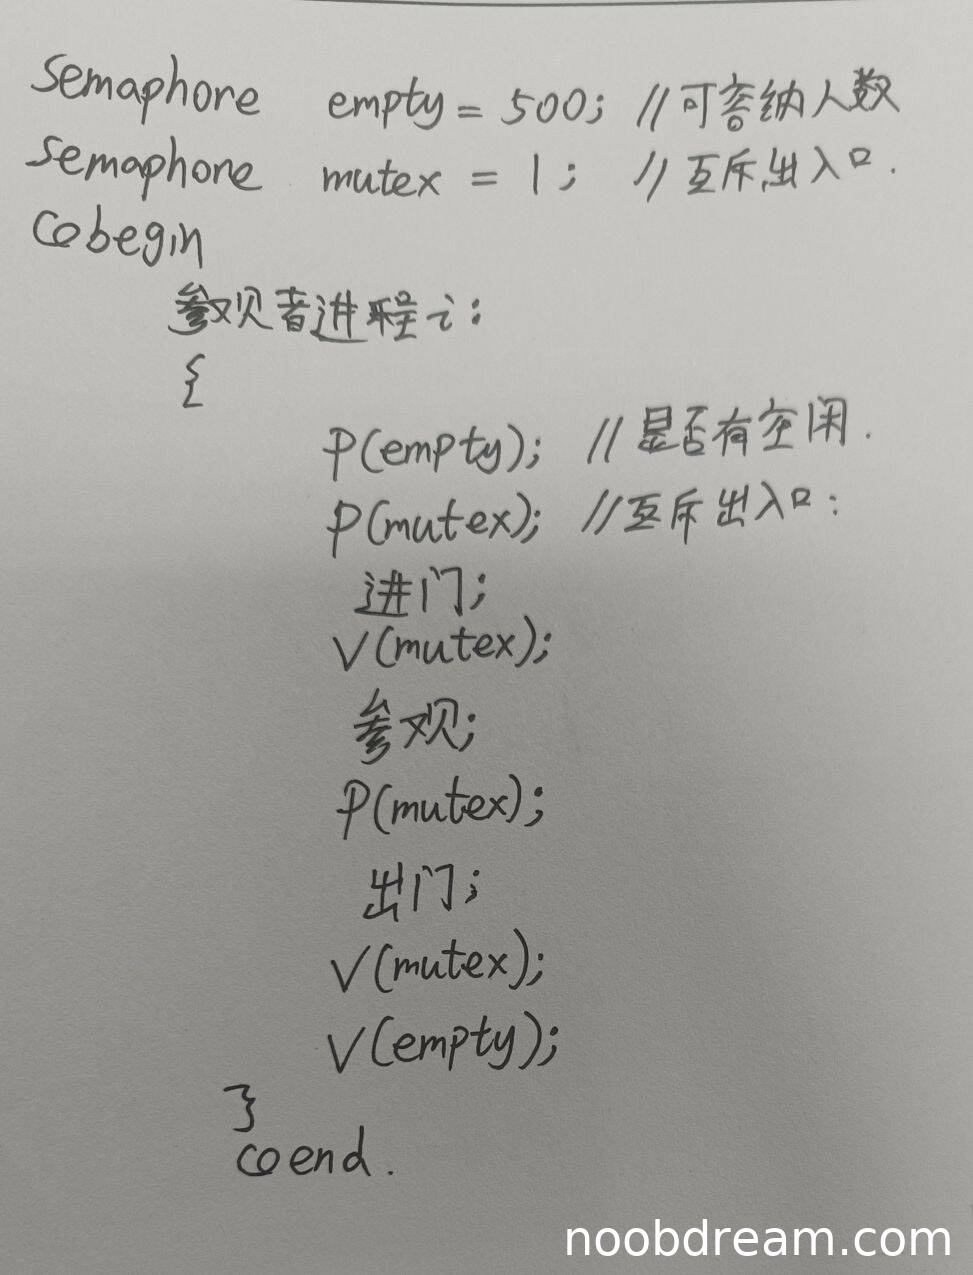 Semaphore empty = 500; //可容纳人数
Semaphore mutex = 1; //互斥出入口.
Cobegin
参观者进程i:
{
P(empty); //是否有空闲.
P(mutex); //互斥出入口:
进门;
V(mutex);
参观;
P(mutex);
出门;
V(mutex);
V(empty);
}
coend.
noobdream.com